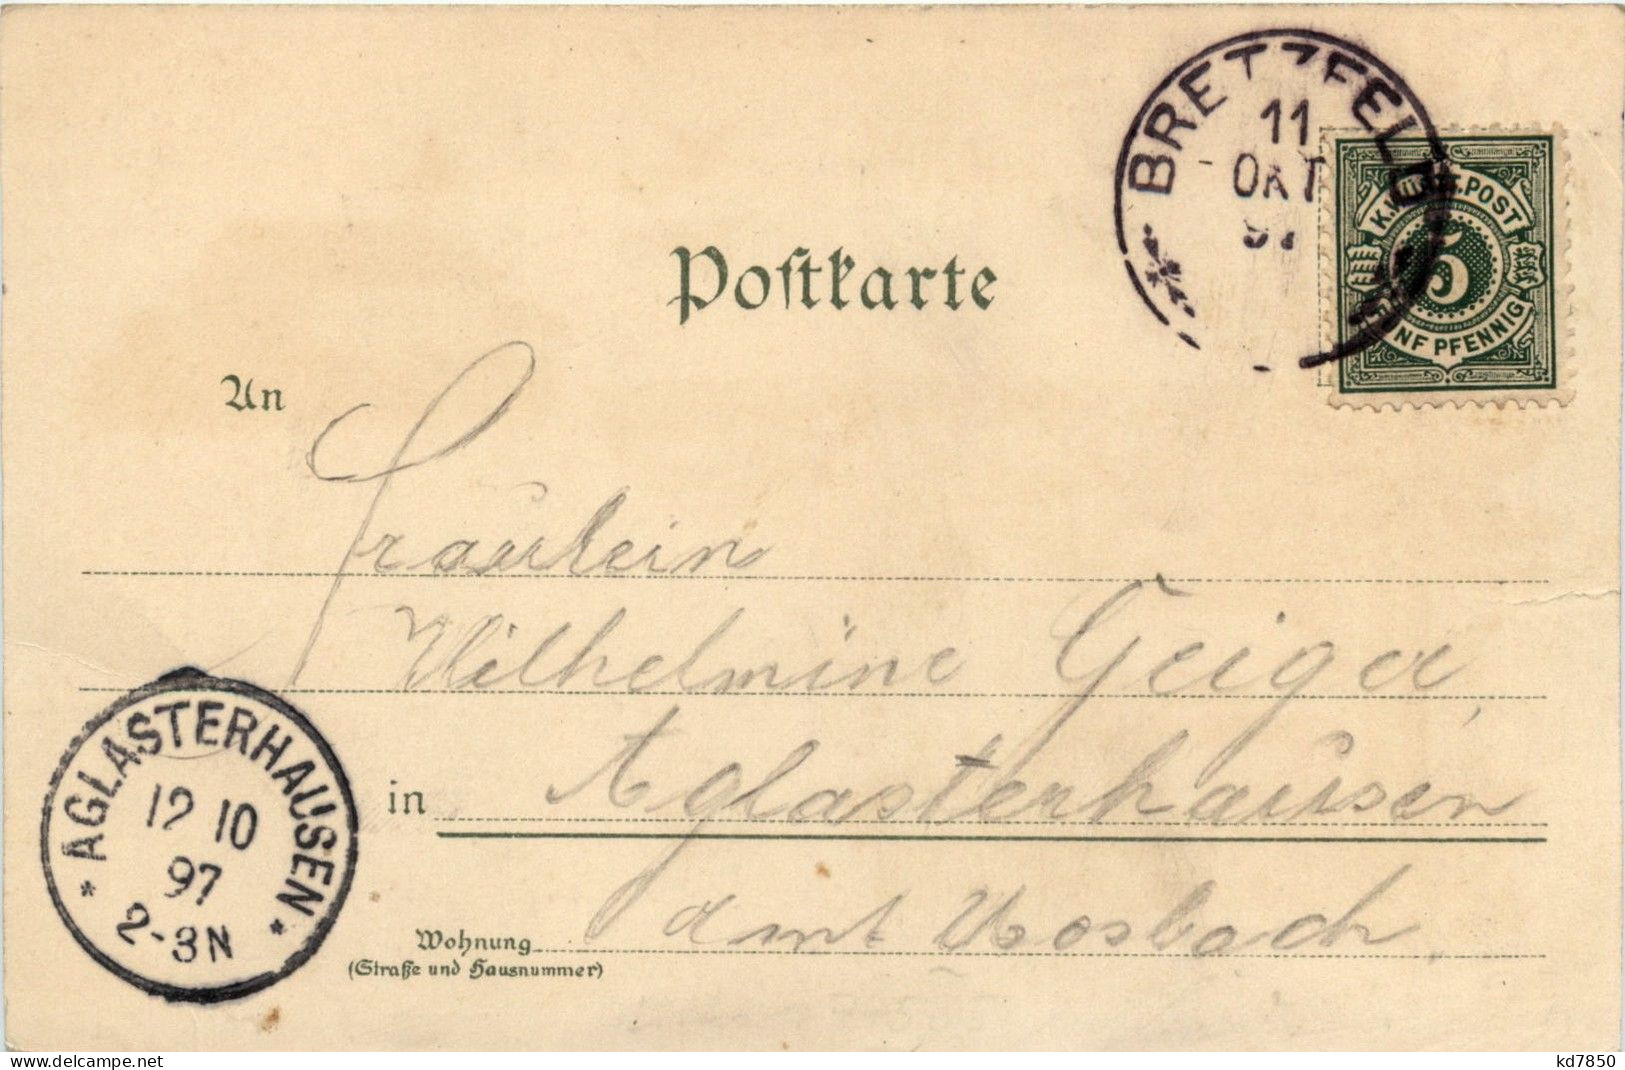 BRETZFELD
11
OKT
97
K.WÜRTT.POST
5
FÜNF PFENNIG
Postkarte
An
Fräulein
Wilhelmine Geiger,
in Aglasterhausen
Amt Mosbach
Wohnung
(Straße und Hausnummer)
* AGLASTERHAUSEN *
12 10
97
2-3N
delcampe.net
kd7850